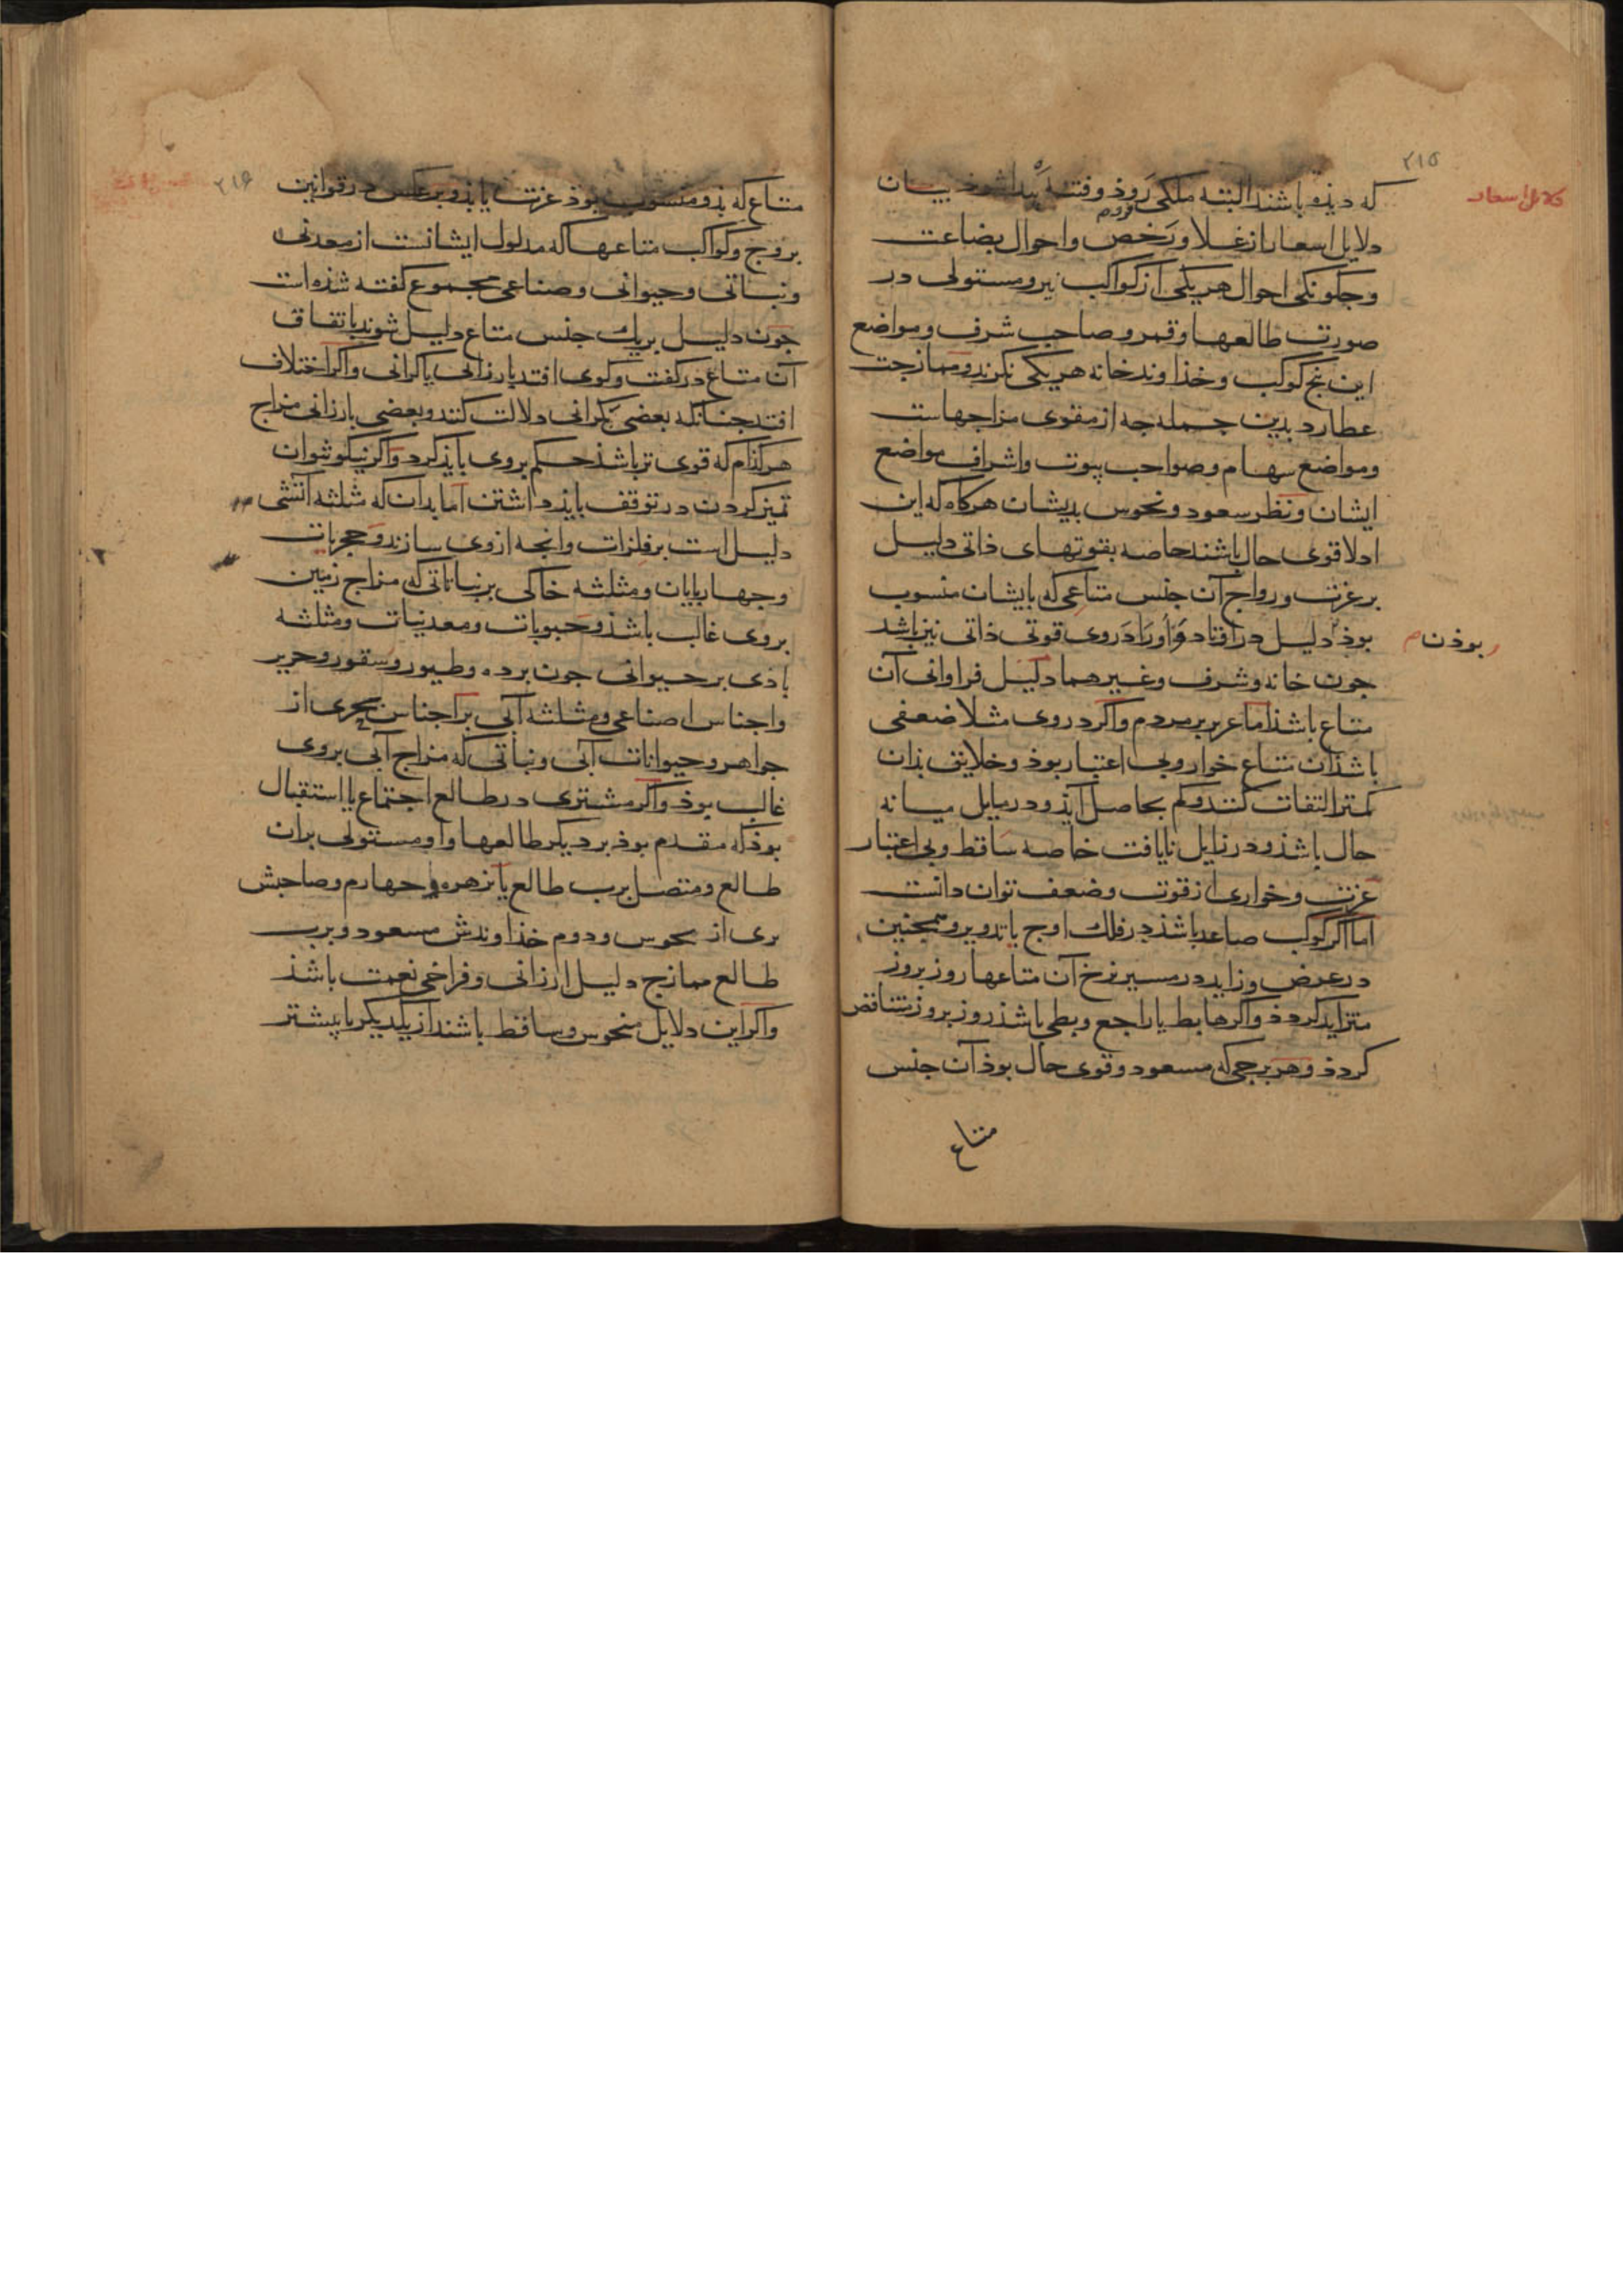 ۲۱۵
دلایل اسعار
که دیذه باشند البته ملکی روذ و فتنه بیدا شوذ بیان
دلایل اسعار از غلا و رخص و احوال بضاعت
و جکونکی احوال هر یکی از کواکب نیر و مستولی در
صورت طالعها و قمر و صاحب شرف و مواضع
این بنج کوکب و خذاوند خانه هر یکی نکرند و ممازجت
عطارد بدین جمله جه از مقوی مزاجهاست
و مواضع سهام و صواحب بیوت و اشراف مواضع
ایشان و نظر سعود و نحوس بدیشان هرکاه که این
ادلا قوی حال باشند خاصه بقوتهای ذاتی دلیل
بر عزت و رواج آن جنس متاعی که بایشان منسوب
بوذ دلیل در افتاد و در وی قوتی ذاتی نیز باشد
بوذن
جون خانه و شرف و غیرهما دلیل فراوانی آن
متاع باشذ اما عزیز بر مردم و اکر در وی مثلا ضعفی
باشذ ان متاع خوار و بی اعتبار بوذ و خلایق بذان
کمتر التفات کنند و کم بحاصل آیذ و در مایل میانه
حال باشذ و در زایل نایافت خاصه ساقط و بی اعتبار
عزت و خواری از قوت و ضعف توان دانست
اما اکر کوکب صاعد باشذ در فلک اوج یا تدویر و همجنین
در عرض و زاید در مسیر نرخ آن متاعها روز بروز
متزاید کردذ و اکر هابط یا راجع و بطی باشذ روز بروز متناقص
کردذ و هر برجی که مسعود و قوی حال بوذ آن جنس
متاع
۲۱۶
متاع که بذو منسوب بوذ عزت یابذ و برعکس در قوانین
بروج و کواکب متاعها که مدلول ایشانست از معدنی
و نباتی و حیوانی و صناعی مجموع کفته شذه است
جون دلیل بر یک جنس متاع دلیل شوند باتفاق
آن متاع در کفت و کوی افتد بارزانی یا کرانی و اکر اختلاف
افتد جنانکه بعضی بکرانی دلالت کنند و بعضی بارزانی مزاج
هرکذام که قوی تر باشذ حکم بر وی بایذ کرد و اکر نیکو نتوان
تمیز کردن در توقف بایذ داشتن اما بدان که مثلثه آتشی
دلیل است بر فلزات و انجه از وی سازند و حجریات
و جهاربایان و مثلثه خاکی بر نباتاتی که مزاج زمین
بر وی غالب باشذ و حبوبات و معدنیات و مثلثه
باذی بر حیوانی جون برده و طیور و سقور و حریر
و اجناس صناعی و مثلثه آبی بر اجناس بحری از
جواهر و حیوانات آبی و نباتی که مزاج آبی بر وی
غالب بوذ و اکر مشتری در طالع اجتماع یا استقبال
بوذ که مقدم بوذ بر دیکر طالعها و او مستولی بران
طالع و متصل برب طالع یا بزهره و جهارم و صاحبش
بری از نحوس و دوم خذاوندش مسعود و برب
طالع ممازج دلیل ارزانی و فراخی نعمت باشذ
و اکر این دلایل منحوس و ساقط باشند از یکدیکر یا بیشتر